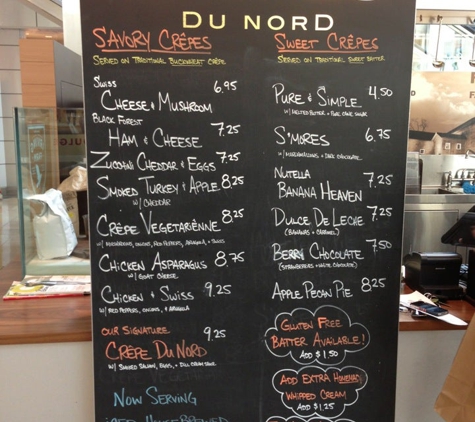 DU NORD
SAVORY CRÊPES
SERVED ON TRADITIONAL BUCKWHEAT CRÊPE
SWISS
CHEESE & MUSHROOM 6.95
BLACK FOREST
HAM & CHEESE 7.25
ZUCCHINI CHEDDAR & EGGS 7.25
SMOKED TURKEY & APPLE 8.25
W/ CHEDDAR
CRÊPE VEGETARIÈNNE 8.25
W/ MUSHROOMS, ONIONS, RED PEPPERS, ARUGULA & SWISS
CHICKEN ASPARAGUS 8.75
W/ GOAT CHEESE
CHICKEN & SWISS 9.25
W/ RED PEPPERS, ONIONS, & ARUGULA
OUR SIGNATURE 9.25
CRÊPE DU NORD
W/ SMOKED SALMON, EGGS, & DILL CREAM SAUCE
NOW SERVING
ICED HOUSEBREWED
SWEET CRÊPES
SERVED ON TRADITIONAL SWEET BATTER
PURE & SIMPLE 4.50
W/ MELTED BUTTER & PURE CANE SUGAR
S'MORES 6.75
W/ MARSHMALLOWS & DARK CHOCOLATE
NUTELLA
BANANA HEAVEN 7.25
DULCE DE LECHE 7.25
(BANANAS & CARAMEL)
BERRY CHOCOLATE 7.50
(STRAWBERRIES & WHITE CHOCOLATE)
APPLE PECAN PIE 8.25
GLUTEN FREE
BATTER AVAILABLE!
ADD $1.50
ADD EXTRA HOMEMADE
WHIPPED CREAM
ADD $1.25